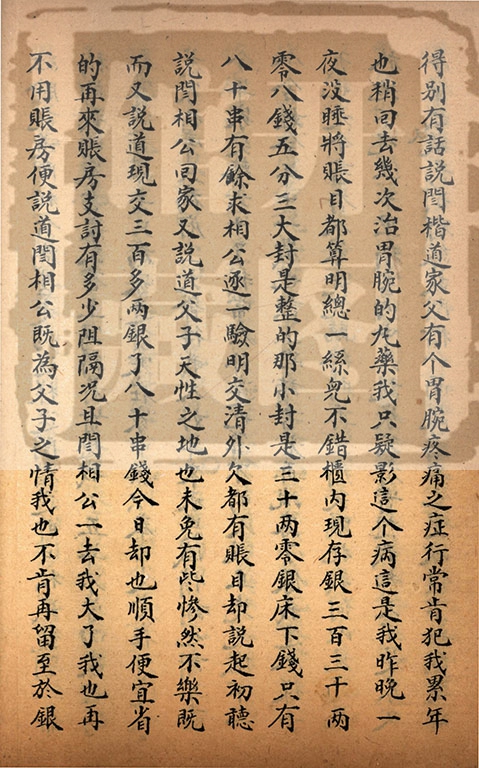 得別有話說閆楷道家父有个胃腕疼痛之症行常肯犯我累年
也稍回去幾次治胃腕的丸藥我只疑影這个病這是我昨晚一
夜没睡將賬目都算明總一絲皃不錯櫃內現存銀三百三十两
零八錢五分三大封是整的那小封是三十两零銀床下錢只有
八十串有餘求相公逐一驗明交清外欠都有賬目却說起初聽
說閆相公囘家又說道父子天性之地也未免有些慘然不樂旣
而又說道現交三百多两銀了八十串錢今日却也順手便宜省
的再來賬房支討有多少阻隔况且閆相公一去我大了我也再
不用賬房便說道閆相公旣為父子之情我也不肯再留至於銀